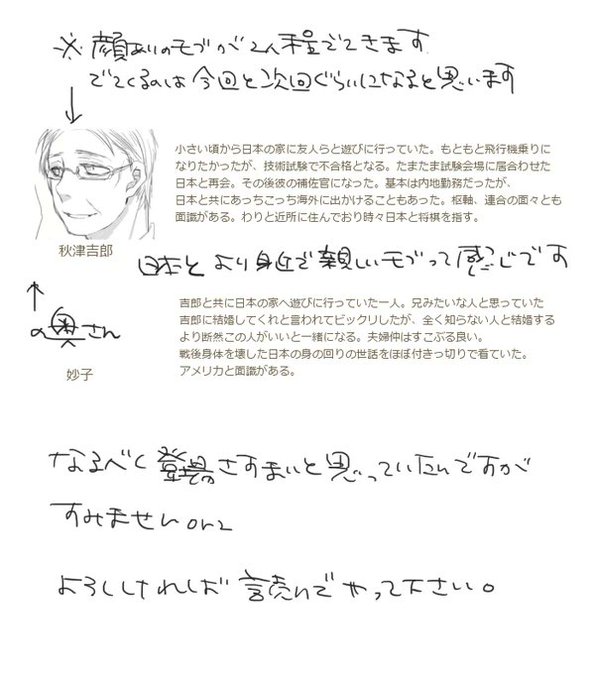 ※顔ありのモブが2人程でてきます
でてくるのは今回と次回ぐらいになると思います
↓
小さい頃から日本の家に友人らと遊びに行っていた。もともと飛行機乗りに
なりたかったが、技術試験で不合格となる。たまたま試験会場に居合わせた
日本と再会。その後彼の補佐官になった。基本は内地勤務だったが、
日本と共にあっちこっち海外に出かけることもあった。枢軸、連合の面々とも
面識がある。わりと近所に住んでおり時々日本と将棋を指す。
秋津吉郎
日本とより身近で親しいモブって感じです
↑
の奥さん
妙子
吉郎と共に日本の家へ遊びに行っていた一人。兄みたいな人と思っていた
吉郎に結婚してくれと言われてビックリしたが、全く知らない人と結婚する
より断然この人がいいと一緒になる。夫婦仲はすこぶる良い。
戦後身体を壊した日本の身の回りの世話をほぼ付きっ切りで看ていた。
アメリカと面識がある。
なるべく登場さすまいと思っていたんですが
すみませんorz
よろしければ言売んでやって下さい。